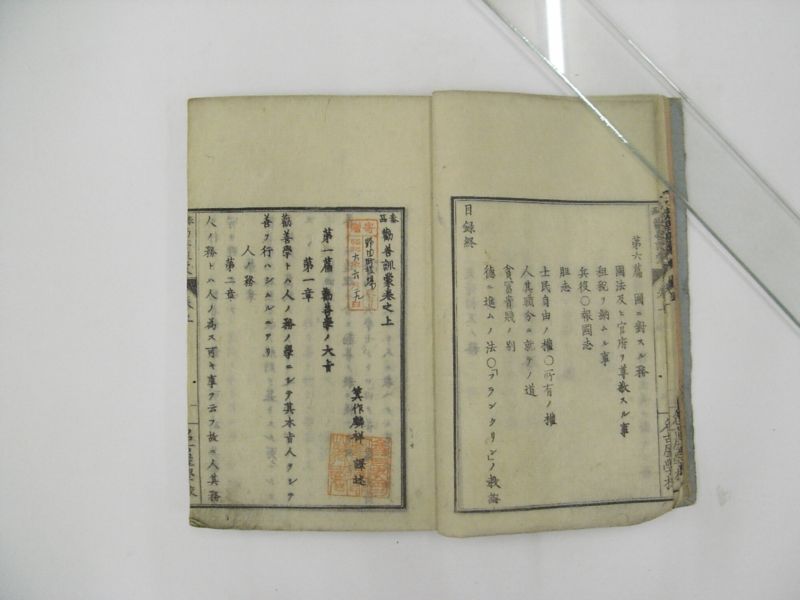 第六篇 國ニ對スル務
國法及ヒ官府ヲ尊敬スル事
租税ヲ納ムル事
兵役〇報國志
胆志
士民自由ノ權〇所有ノ權
人其職分ニ就クノ道
貧冨貴賎ノ別
徳ニ進ムノ法〇「フランクリン」ノ教誨
目録終
名古屋學校
泰西 勸善訓蒙巻之上
箕作麟祥 譯述
第一篇 勸善學ノ大旨
第一章
勸善學トハ人ノ務ノ學ニシテ其本旨人ヲシテ
善ヲ行ハシムルニアリ
第二章 人ノ務
人ノ務トハ人ノ為ス可キ事ヲ云フ故ニ人其務
名古屋學校